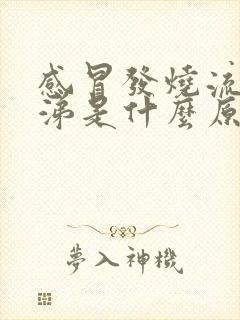 感冒發燒流
涕是什麼原
夢入神機